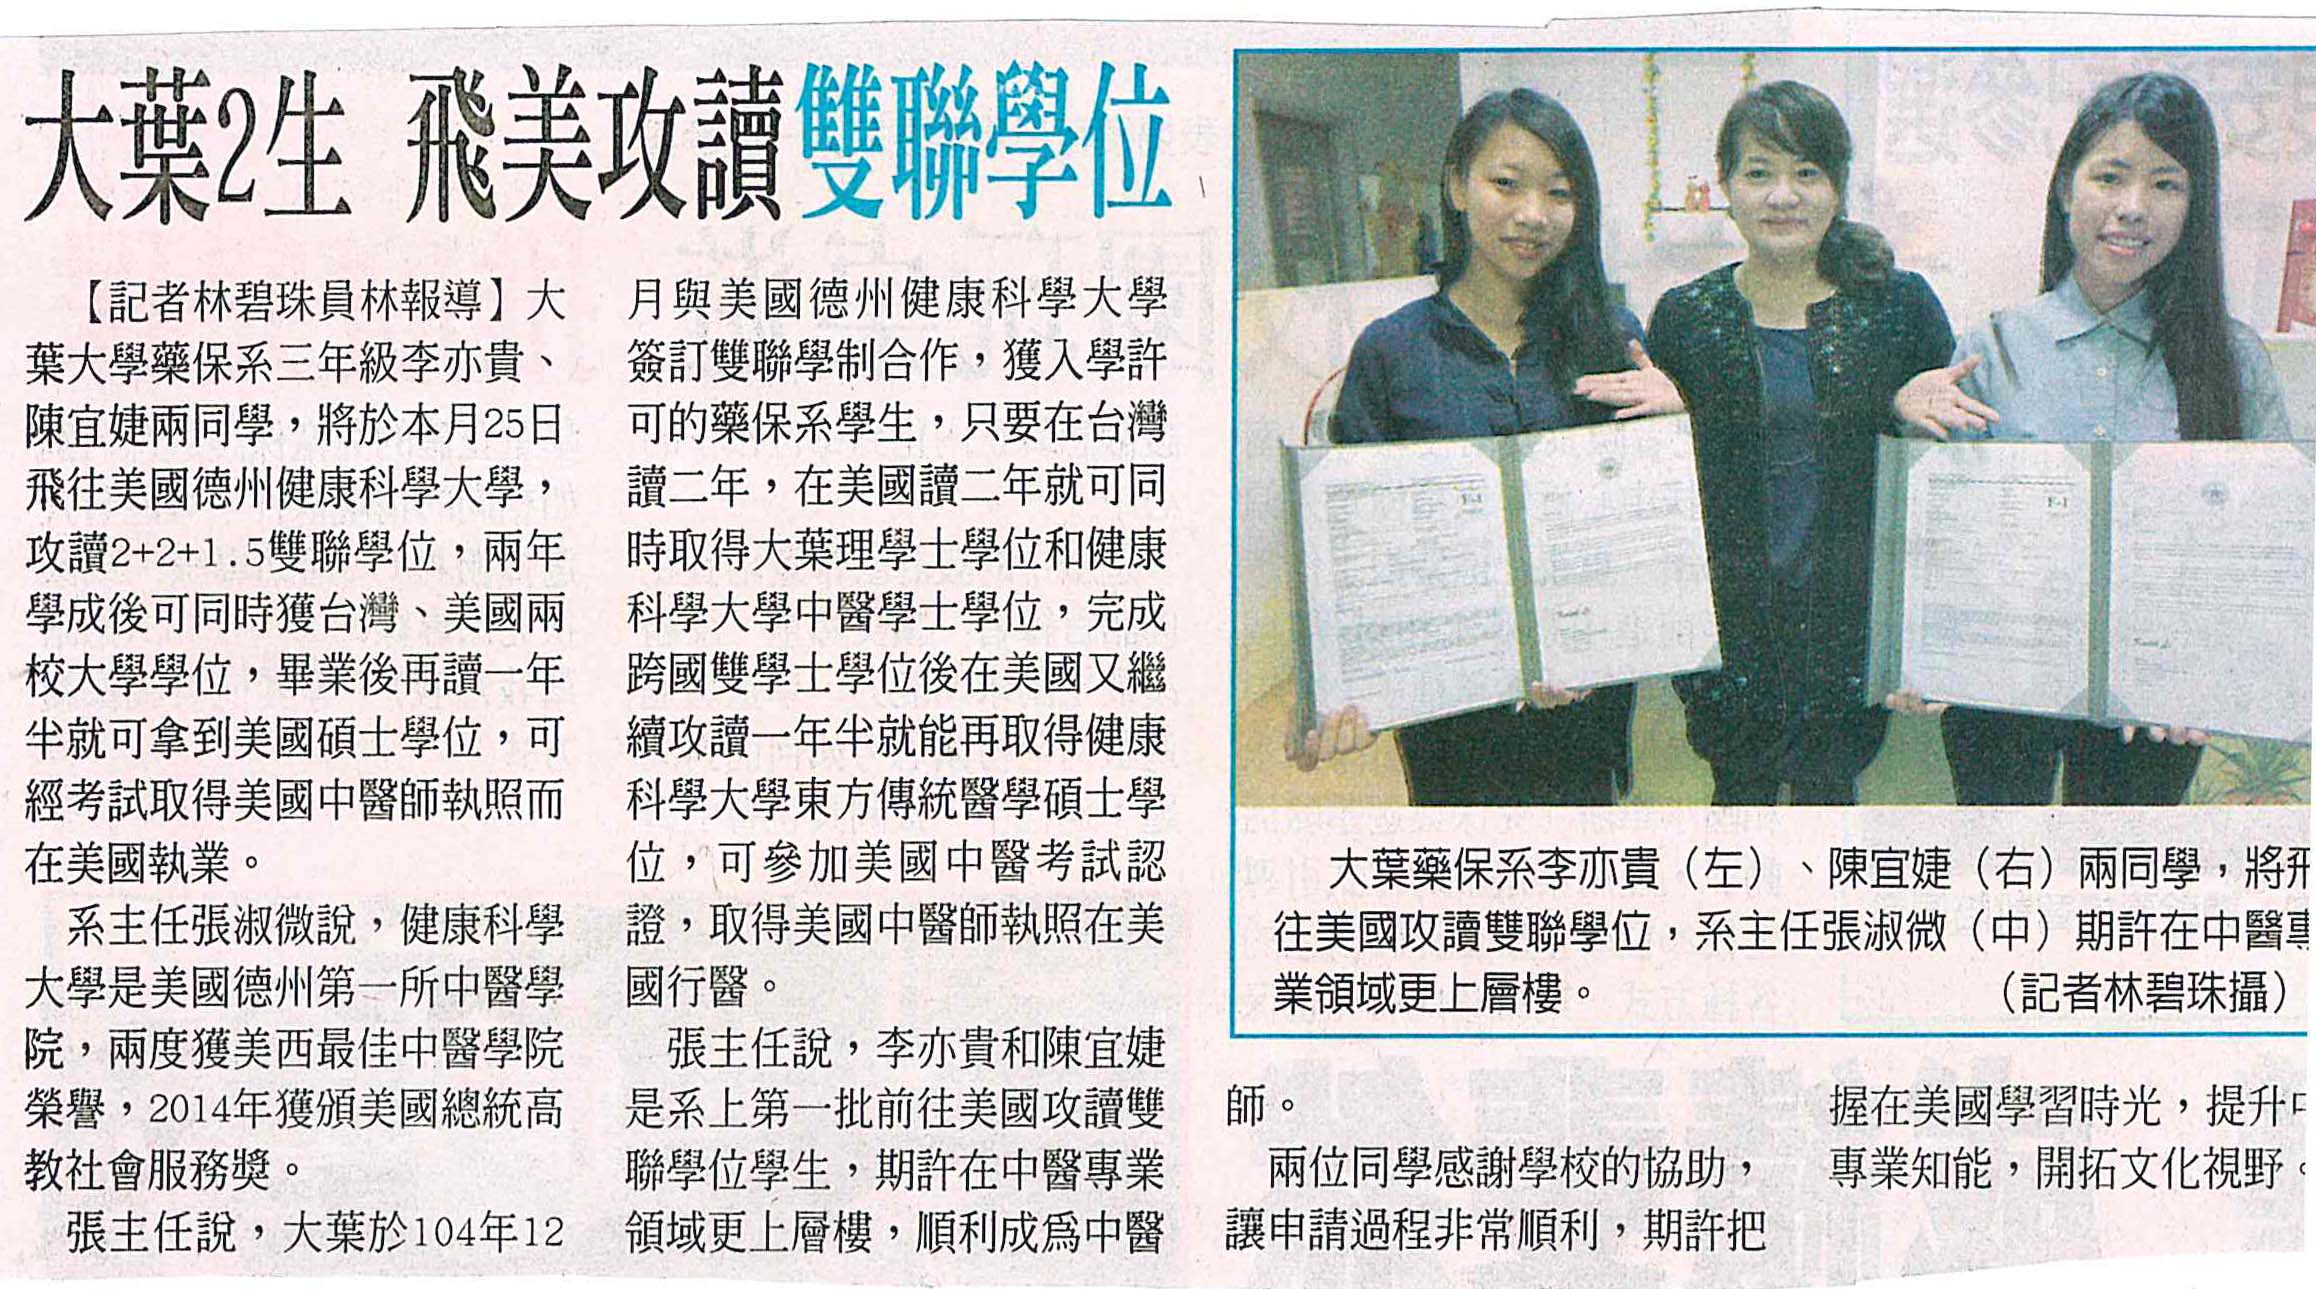 大葉2生 飛美攻讀雙聯學位
【記者林碧珠員林報導】大
葉大學藥保系三年級李亦貴、
陳宜婕兩同學，將於本月25日
飛往美國德州健康科學大學，
攻讀2+2+1.5雙聯學位，兩年
學成後可同時獲台灣、美國兩
校大學學位，畢業後再讀一年
半就可拿到美國碩士學位，可
經考試取得美國中醫師執照而
在美國執業。
系主任張淑微說，健康科學
大學是美國德州第一所中醫學
院，兩度獲美西最佳中醫學院
榮譽，2014年獲頒美國總統高
教社會服務獎。
張主任說，大葉於104年12
月與美國德州健康科學大學
簽訂雙聯學制合作，獲入學許
可的藥保系學生，只要在台灣
讀二年，在美國讀二年就可同
時取得大葉理學士學位和健康
科學大學中醫學士學位，完成
跨國雙學士學位後在美國又繼
續攻讀一年半就能再取得健康
科學大學東方傳統醫學碩士學
位，可參加美國中醫考試認
證，取得美國中醫師執照在美
國行醫。
張主任說，李亦貴和陳宜婕
是系上第一批前往美國攻讀雙
聯學位學生，期許在中醫專業
領域更上層樓，順利成為中醫
師。
兩位同學感謝學校的協助，
讓申請過程非常順利，期許把
握在美國學習時光，提升中
專業知能，開拓文化視野。
F-1
F-1
大葉藥保系李亦貴（左）、陳宜婕（右）兩同學，將飛
往美國攻讀雙聯學位，系主任張淑微（中）期許在中醫專
業領域更上層樓。 （記者林碧珠攝）